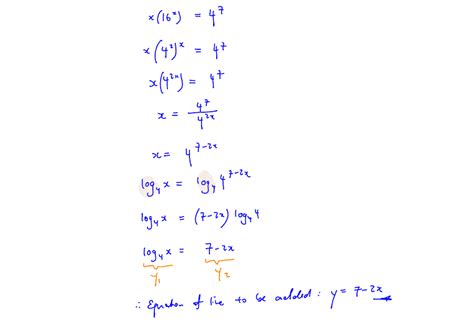 x(16ˣ) = 4⁷
x(4²)ˣ = 4⁷
x(4²ˣ) = 4⁷
x = 4⁷/4²ˣ
x = 4⁷⁻²ˣ
log₄x = log₄4⁷⁻²ˣ
log₄x = (7-2x) log₄4
log₄x = 7-2x
y₁ y₂
∴ Equation of line to be added: y = 7-2x